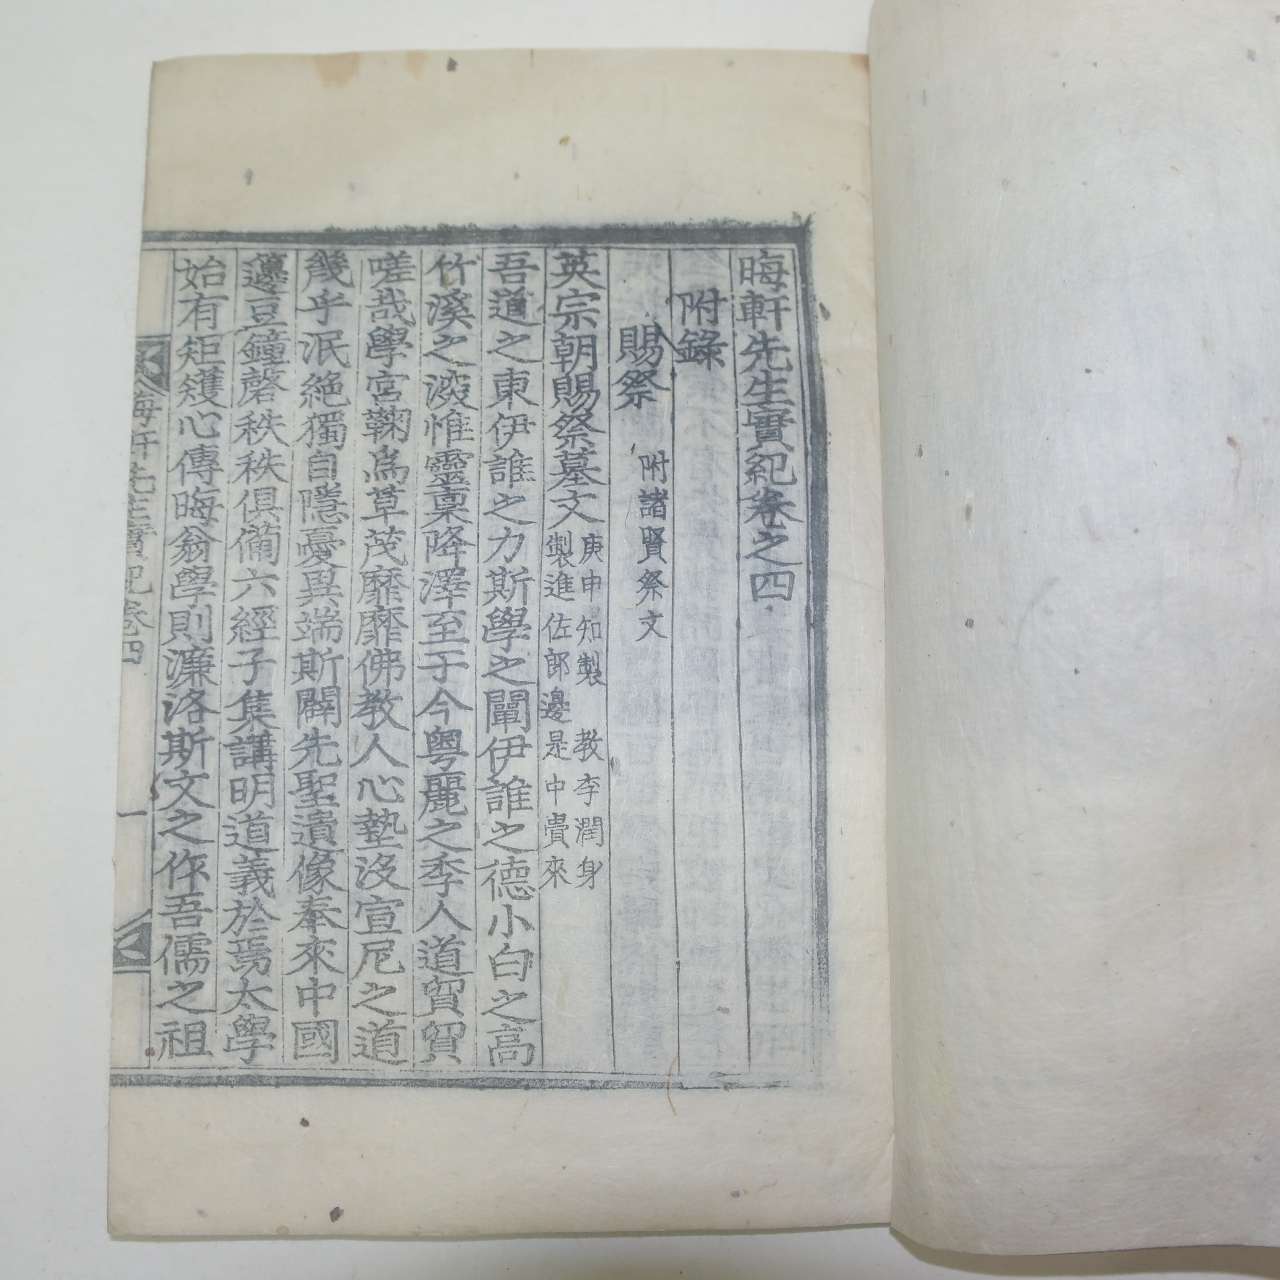 晦軒先生實紀卷之四
附錄
賜祭 附諸賢祭文
英宗朝賜祭墓文 庚申知製 教李潤身
製進佐郎邊是中賷來
吾道之東伊誰之力斯學之闡伊誰之德小白之高
竹溪之淡惟靈稟降澤至于今粤麗之季人道貿貿
嗟哉學宮鞠爲草茂靡靡佛教人心墊沒宣尼之道
幾乎泯絶獨自隱憂異端斯闢先聖遺像奉來中國
籩豆鐘磬秩秩俱備六經子集講明道義於焉太學
始有矩矱心傳晦翁學則濂洛斯文之作吾儒之祖
晦軒先生實紀卷四
一